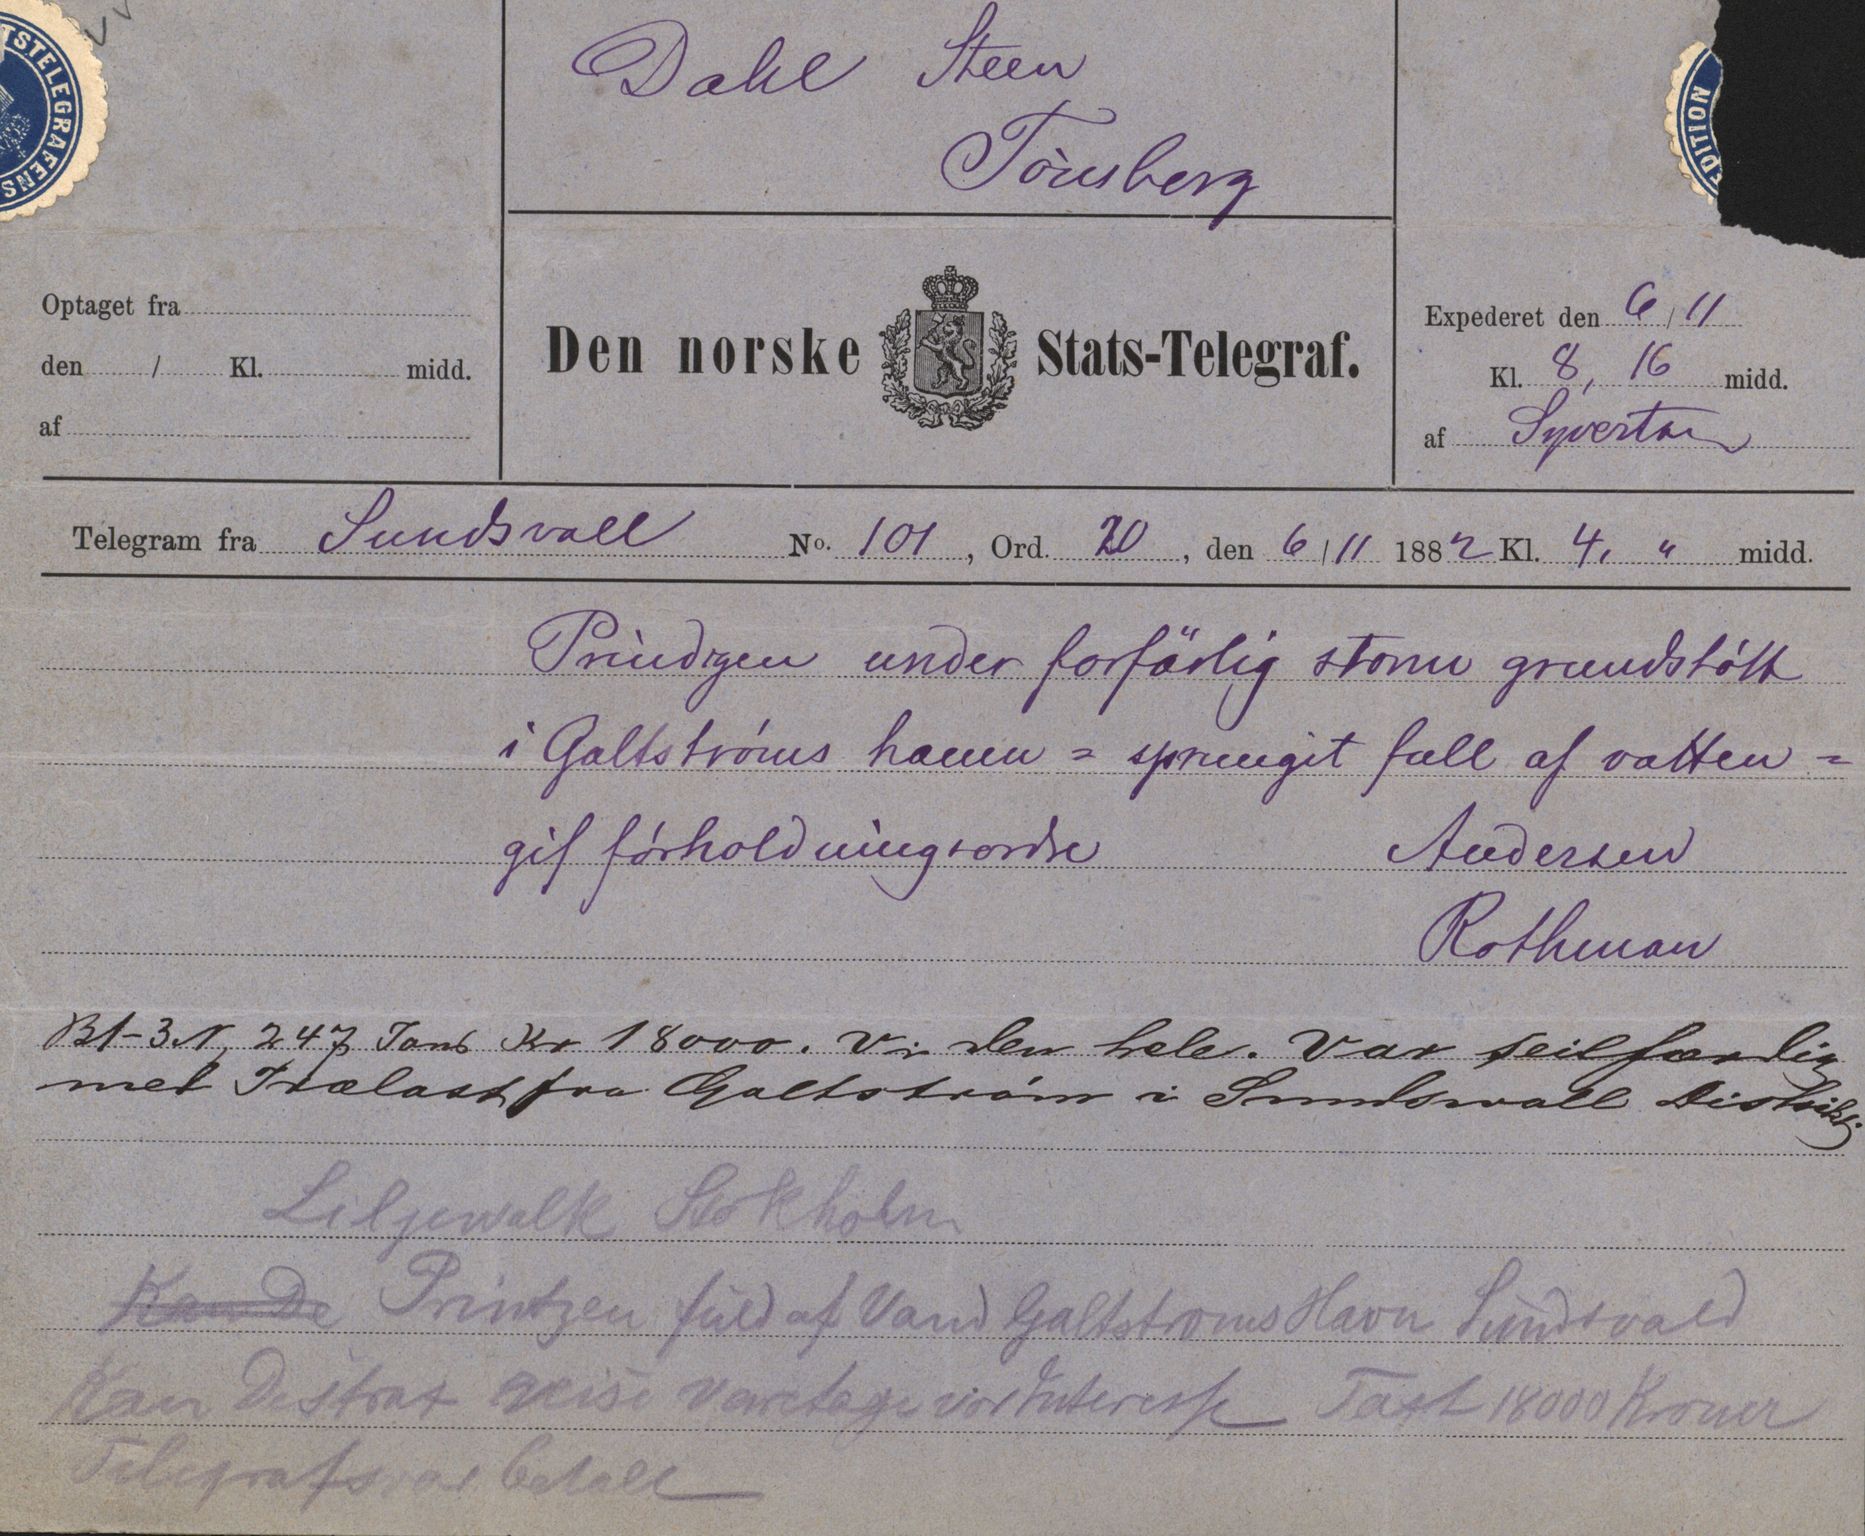 TSTELEGRAFENS
PEDITION
Dahl Steen
Tönsberg
Optaget fra
den / Kl. midd.
af
Den norske Stats-Telegraf.
Expederet den 6/11
Kl. 8,16 midd.
af Syvertsen
Telegram fra Sundsvall No. 101, Ord. 20, den 6/11 1882 Kl. 4, " midd.
Prindzen under forfärlig storm grundstött
i Galtströms hamn = sprungit full af vatten =
gif förholdningsordre Andersen
Rothman
B1-3.N, 247 Tons Kr 18000. Vi den hele. Var seilfærdig
met Trælast fra Galtström i Sundswall District.
Liljewalk Stokholm
Kan De Printzen fuld af Vand Galtstroms Havn Sundsvald
Kan De strax reise varetage vor Interesse Taxt 18000 Kroner
Telegrafsvar betalt